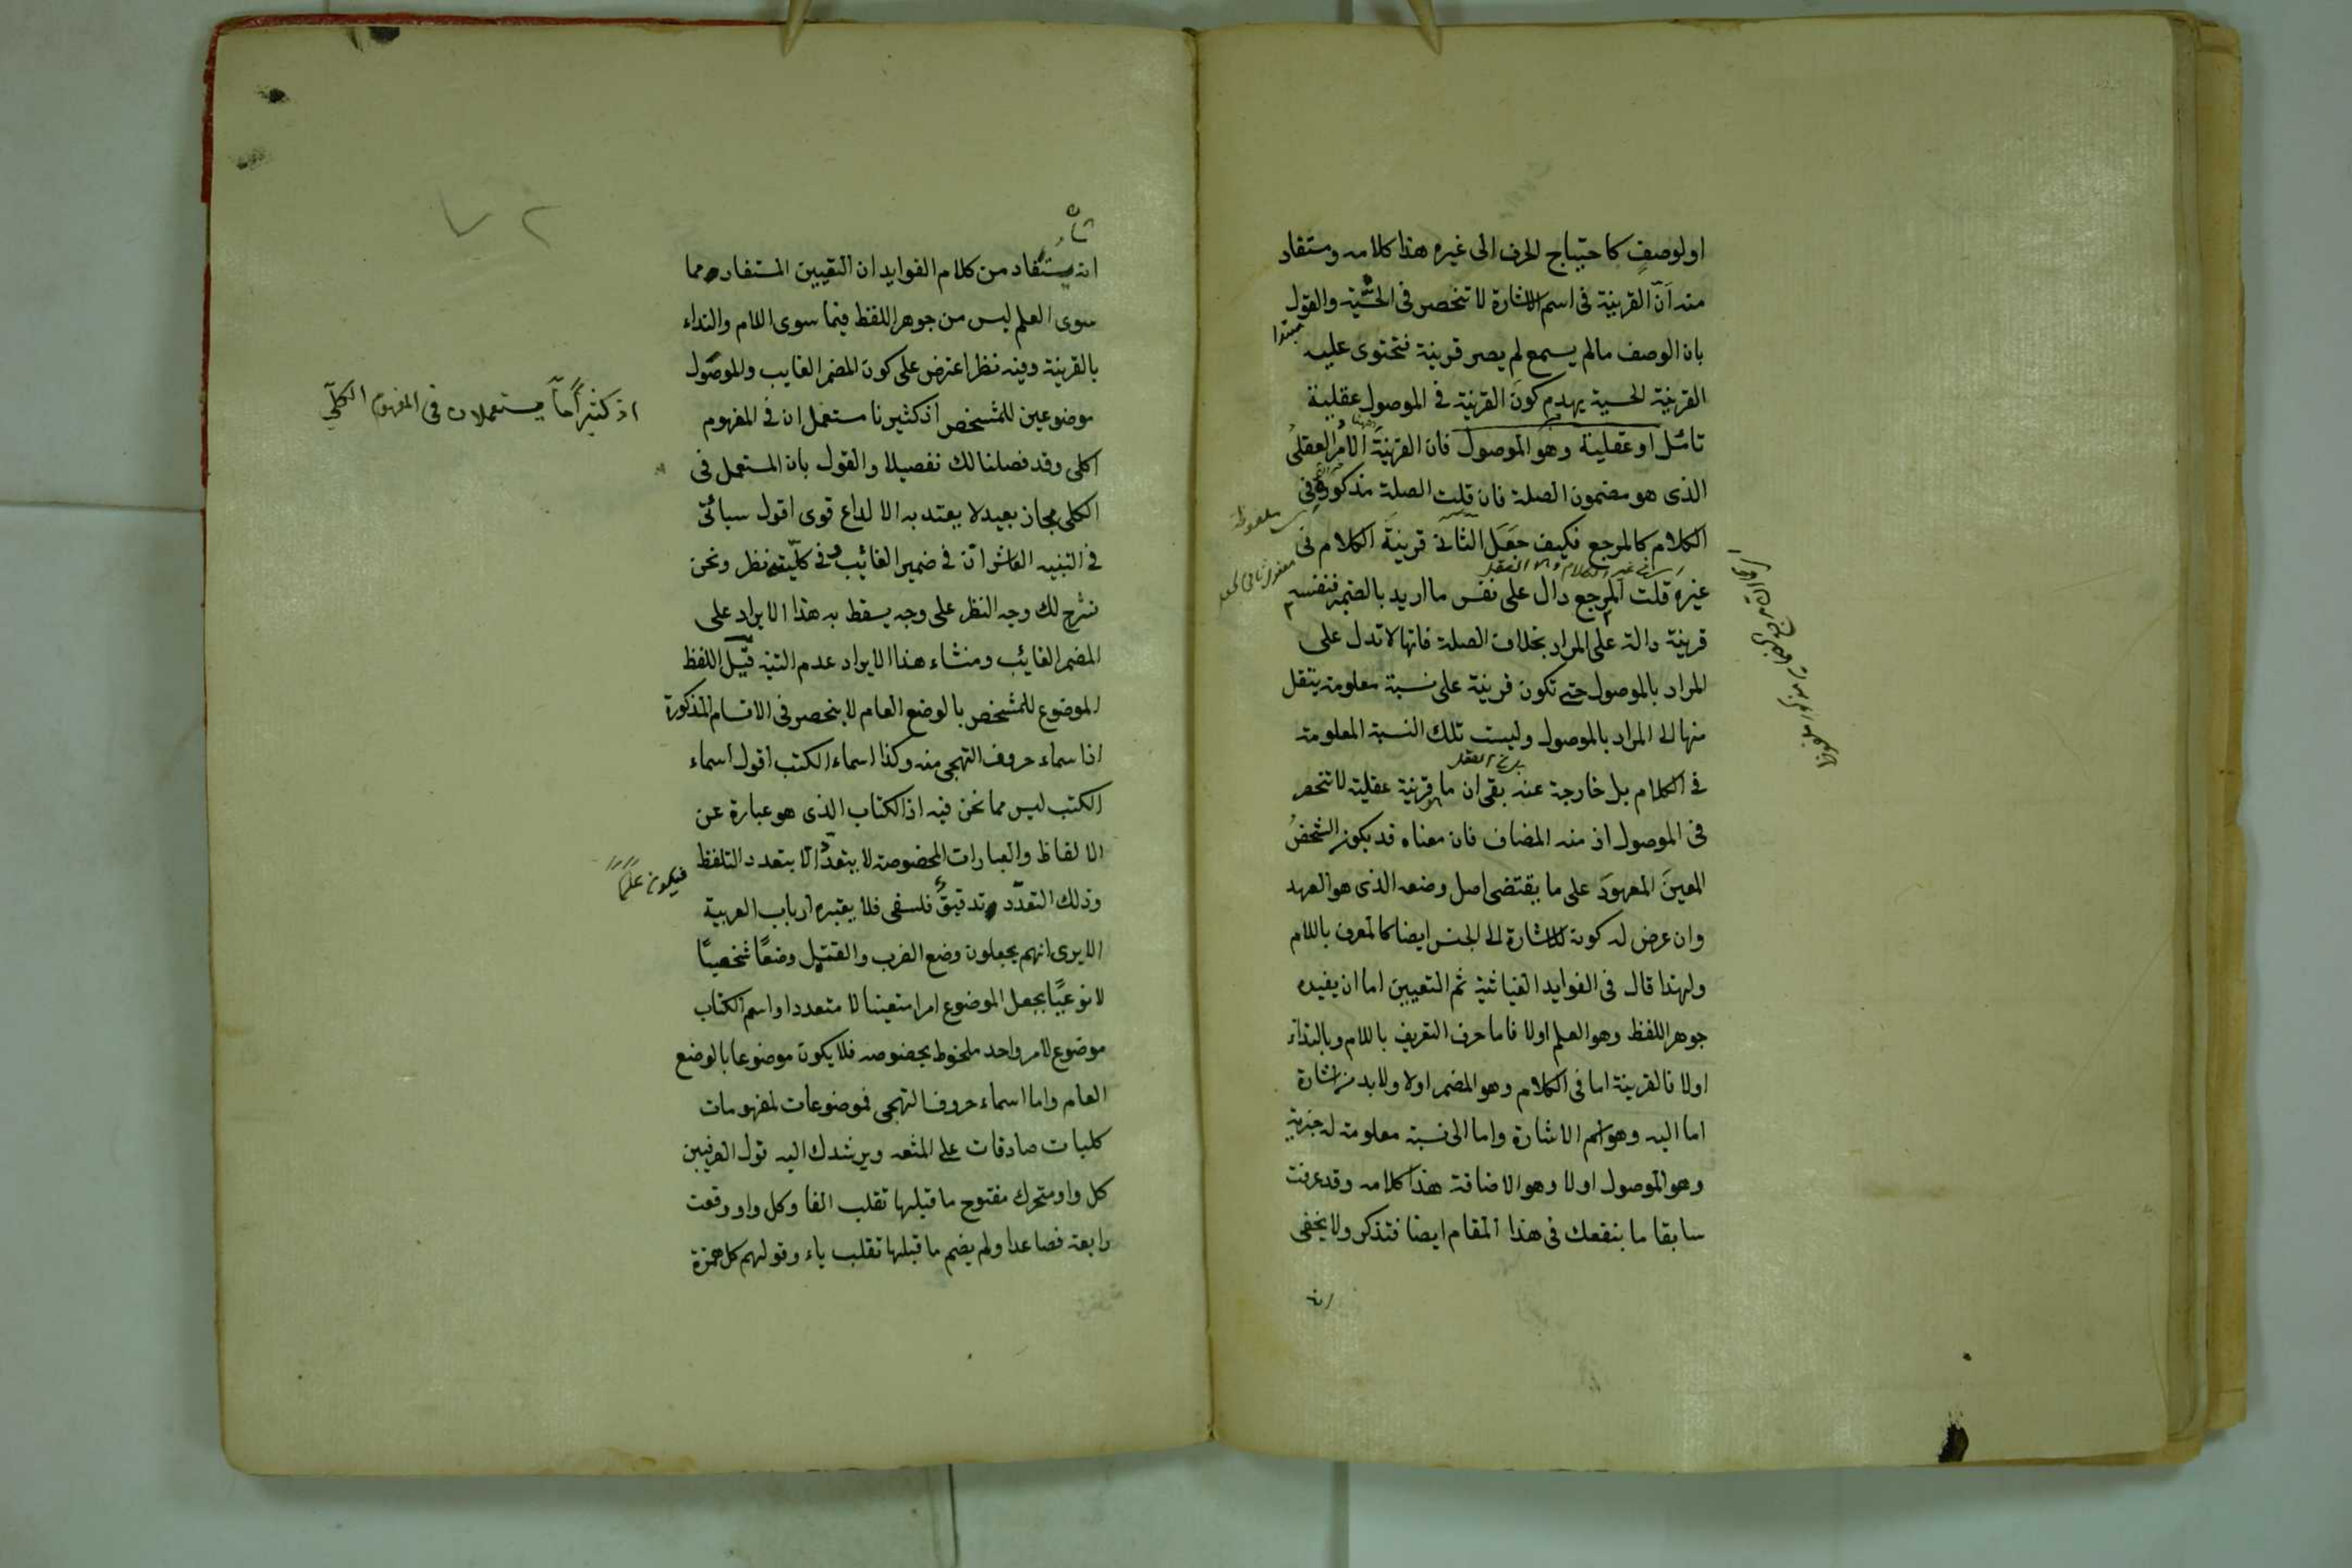 اولوصفٍ كاحتياج الحرف الى غيره هذا كلامه ومستفاد
منه انّ القرينة فى اسم الاشارة لا تنحصر فى الحسّية والقول
بان الوصف مالم يسمع لم يصر قرينة فتحتوى عليه
مبتدا
القرينة الحسية يهدم كونَ القرينة فى الموصول عقلية
تاسّل او عقلية وهو الموصول فان القرينةَ الامرُ العقلىُ
الذى هو مضمون الصلة فان قلت الصلة مذكورة فى
الكلام كالمرجع فكيف جَعَلَ الثانىَ قرينةَ الكلام فى
غيره قلت المرجع دال على نفس ما اريد بالضمير فنفسه
قرينة دالة على المراد بخلاف الصلة فانها لا تدل على
المراد بالموصول حتى تكون قرينة على نسبة معلومة ينتقل
منها الى المراد بالموصول وليست تلك النسبة المعلومة
فى الكلام بل خارجة عنه بقى ان ما قرينة عقلية لا تنحصر
فى الموصول اذ منه المضاف فان معناه قد يكون الشخصُ
المعينَ المعهودَ على ما يقتضى اصل وضعه الذى هو العهد
وان عرض له كونه للاشارة الى الجنس ايضا كالمعرف باللام
ولهذا قال فى الفوايد الغياثية ثم التعيين اما ان يفيده
جوهر اللفظ وهو العلم اولا فاما حرف التعريف باللام وبالنداء
اولا فالقرينة اما فى الكلام وهو المضمر اولا ولا بد من اشارة
اما اليه وهو اسم الاشارة واما الى نسبة معلومة له خبرية
وهو الموصول اولا وهو الاضافة هذا كلامه وقد عرفت
سابقا ما ينفعك فى هذا المقام ايضا فتذكر ولا يخفى
انه
٧٢
انه يستفاد من كلام الفوايد ان التعيين المستفاد مما
سوى العلم ليس من جوهر اللفظ فيما سوى اللام والنداء
بالقرينة وفيه نظر اعترض على كون المضمر الغايب والموصول
موضوعين للمشخص اذ كثيرنا مستعملان فى المفهوم
اذ كثيرًا مّا يستعملان فى المفهوم الكلّي
اكلى وقد فصلنا لك تفصيلا والقول بان المستعمل فى
الكلى مجاز بعيد لا يعتد به الا لداع قوى اقول سيأتى
فى التنبيه العاشر ان فى ضمير الغائب وفى كليّته نظر ونحن
نشرح لك وجه النظر على وجه يسقط به هذا الايراد على
المضمر الغائب ومنشاء هذا الايراد عدم التنبه قيّل اللفظ
الموضوع للمشخص بالوضع العام لا ينحصر فى الاقسام المذكورة
اذ اسماء حروف التهجى منه وكذا اسماء الكتب اقول اسماء
الكتب ليس مما نحن فيه اذ الكتاب الذى هو عبارة عن
الالفاظ والعبارات المخصوصة لا يتعدّد الا بتعدد التلفظ
وذلك التعدّد تدقيقٌ فلسفى فلا يعتبره ارباب العربية
فيكون علمًا
الا يرى انهم يجعلون وضع الضرب والقتل وضعًا شخصيًا
لا نوعيًا بجعل الموضوع امرا متعينا لا متعددا واسم الكتاب
موضوع لامر واحد ملحوظ بخصوصه فلا يكون موضوعا بالوضع
العام واما اسماء حروف التهجى فموضوعات لمفهومات
كليات صادقات على المتعدد ويرشدك اليه قول الصرفيين
كل واو متحرك مفتوح ما قبلها تقلب الفا وكل واو وقعت
رابعة فصاعدا ولم يضم ما قبلها تقلب ياء وقولهم كل همزة